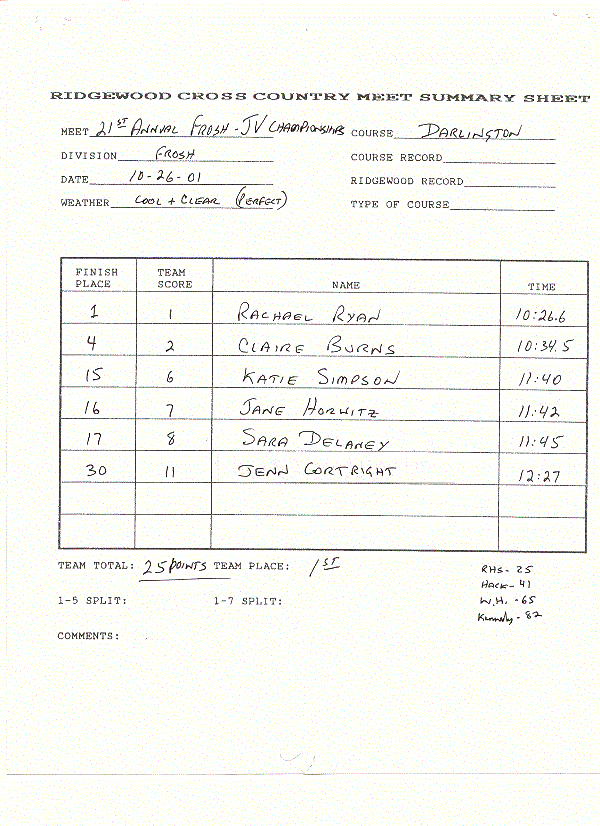 RIDGEWOOD CROSS COUNTRY MEET SUMMARY SHEET
MEET 21ST ANNUAL FROSH - JV CHAMPIONSHIPS COURSE DARLINGTON
DIVISION FROSH COURSE RECORD
DATE 10-26-01 RIDGEWOOD RECORD
WEATHER COOL + CLEAR (PERFECT) TYPE OF COURSE
FINISH PLACE TEAM SCORE NAME TIME
1 1 RACHAEL RYAN 10:26.6
4 2 CLAIRE BURNS 10:34.5
15 6 KATIE SIMPSON 11:40
16 7 JANE HORWITZ 11:42
17 8 SARA DELANEY 11:45
30 11 JENN CORTRIGHT 12:27
TEAM TOTAL: 25 POINTS TEAM PLACE: 1ST
RHS - 25
HACK - 41
W.H. - 65
Kennedy - 82
1-5 SPLIT: 1-7 SPLIT:
COMMENTS: